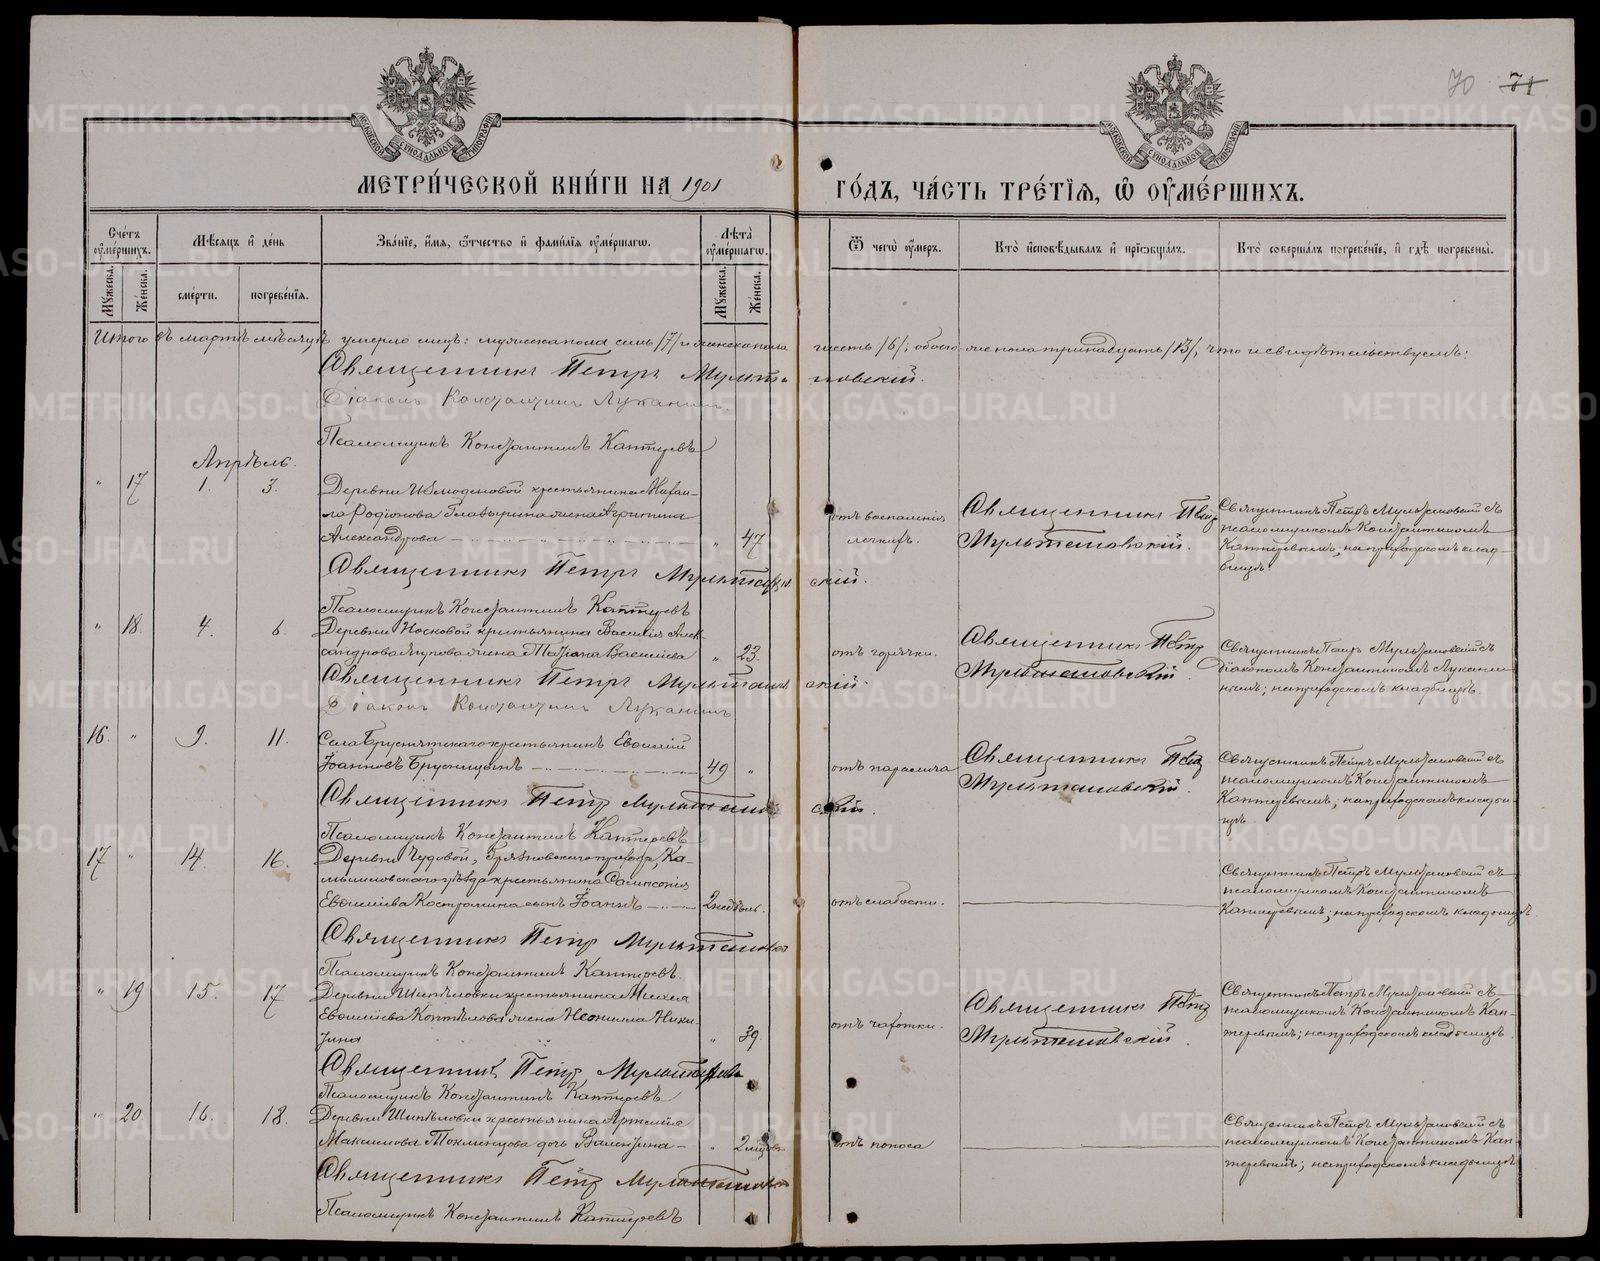 70 71
МОСКОВСКОЙ СѴНОДАЛЬНОЙ ТИПОГРАФІИ
МОСКОВСКОЙ СѴНОДАЛЬНОЙ ТИПОГРАФІИ
МЕТРИ́ЧЕСКОЙ КНИ́ГИ НА 1901 ГО́ДЪ, ЧА́СТЬ ТРЕ́ТІѦ, Ѡ ОУМЕ́РШИХЪ.
Сче́тъ оуме́ршихъ.
Мѣ́сѧцъ и де́нь
Зва́нїе, и́мѧ, ѻ́тчество и фами́лїѧ оуме́ршагѡ.
Лѣ́та оуме́ршагѡ.
Ѿ чегѡ̀ оу́меръ.
Кто̀ и҆сповѣ́дывалъ и҆ прїѡбща́лъ.
Кто̀ соверша́лъ погребе́нїе, и҆ гдѣ̀ погребены̀.
Мꙋ́жеска.
Же́нска.
сме́рти.
погребе́нїѧ.
Мꙋ́жеска.
Же́нска.
Итого въ мартѣ мѣсяцѣ умерло лицъ: мужеска пола семь /7/ и женска пола шесть /6/, обоего же пола тринадцать /13/, что и свидѣтельствуемъ:
Священникъ Петръ Мультановскій.
Діаконъ Константинъ Луканинъ.
Псаломщикъ Константинъ Каптеревъ
Апрѣль.
" 17 1. 3.
Деревни крестьянина Михаи-
ла Родіонова жена Агрипина
Александрова " 47
отъ воспаленія
легкихъ.
Священникъ Петръ
Мультановскій.
Священникъ Петръ Мультановскій съ
псаломщикомъ Константиномъ
Каптеревымъ, на приходскомъ клад-
бищѣ.
Священникъ Петръ Мультановскій.
Псаломщикъ Константинъ Каптеревъ
" 18. 4. 6
Деревни Носковой крестьянина Василія Алек-
сандрова жена Татіана Василіева " 23.
отъ горячки.
Священникъ Петръ
Мультановскій.
Священникъ Петръ Мультановскій съ
діакономъ Константиномъ Лукани-
нымъ; на приходскомъ кладбищѣ.
Священникъ Петръ Мультановскій.
Діаконъ Константинъ Луканинъ
16. " 9. 11.
Села Бруснятскаго крестьянинъ Евѳимій
Іоанновъ Брусницынъ 49 "
отъ паралича
Священникъ Петръ
Мультановскій.
Священникъ Петръ Мультановскій съ
псаломщикомъ Константиномъ
Каптеревымъ; на приходскомъ кладби-
щѣ.
Священникъ Петръ Мультановскій.
Псаломщикъ Константинъ Каптеревъ
17 " 14. 16.
Деревни Чудовой, Грязновскаго прихода, Ка-
мышловскаго уѣзда крестьянина Сампсонія
Евѳиміева Костромина сынъ Іоаннъ 2 недѣль.
отъ слабости.
Священникъ Петръ Мультановскій съ
псаломщикомъ Константиномъ
Каптеревымъ; на приходскомъ кладбищѣ.
Священникъ Петръ Мультановск
Псаломщикъ Константинъ Каптеревъ.
" 19 15. 17
Деревни Шипѣловки крестьянина
Евѳиміева Коптѣлова жена Неонила Ники-
тина " 39.
отъ чахотки.
Священникъ Петръ
Мультановскій.
Священникъ Петръ Мультановскій съ
псаломщикомъ Константиномъ Кап-
теревымъ; на приходскомъ кладбищѣ.
Священникъ Петръ Мультановс
Псаломщикъ Константинъ Каптеревъ
" 20 16. 18.
Деревни Шипѣловки крестьянина Артемія
Максимова дочь Валентина " 2 мѣсяц.
отъ поноса
Священникъ Петръ Мультановскій съ
псаломщикомъ Константиномъ Кап-
теревымъ; на приходскомъ кладбищѣ
Священникъ Петръ Мультановск
Псаломщикъ Константинъ Каптеревъ
METRIKI.GASO-URAL.RU